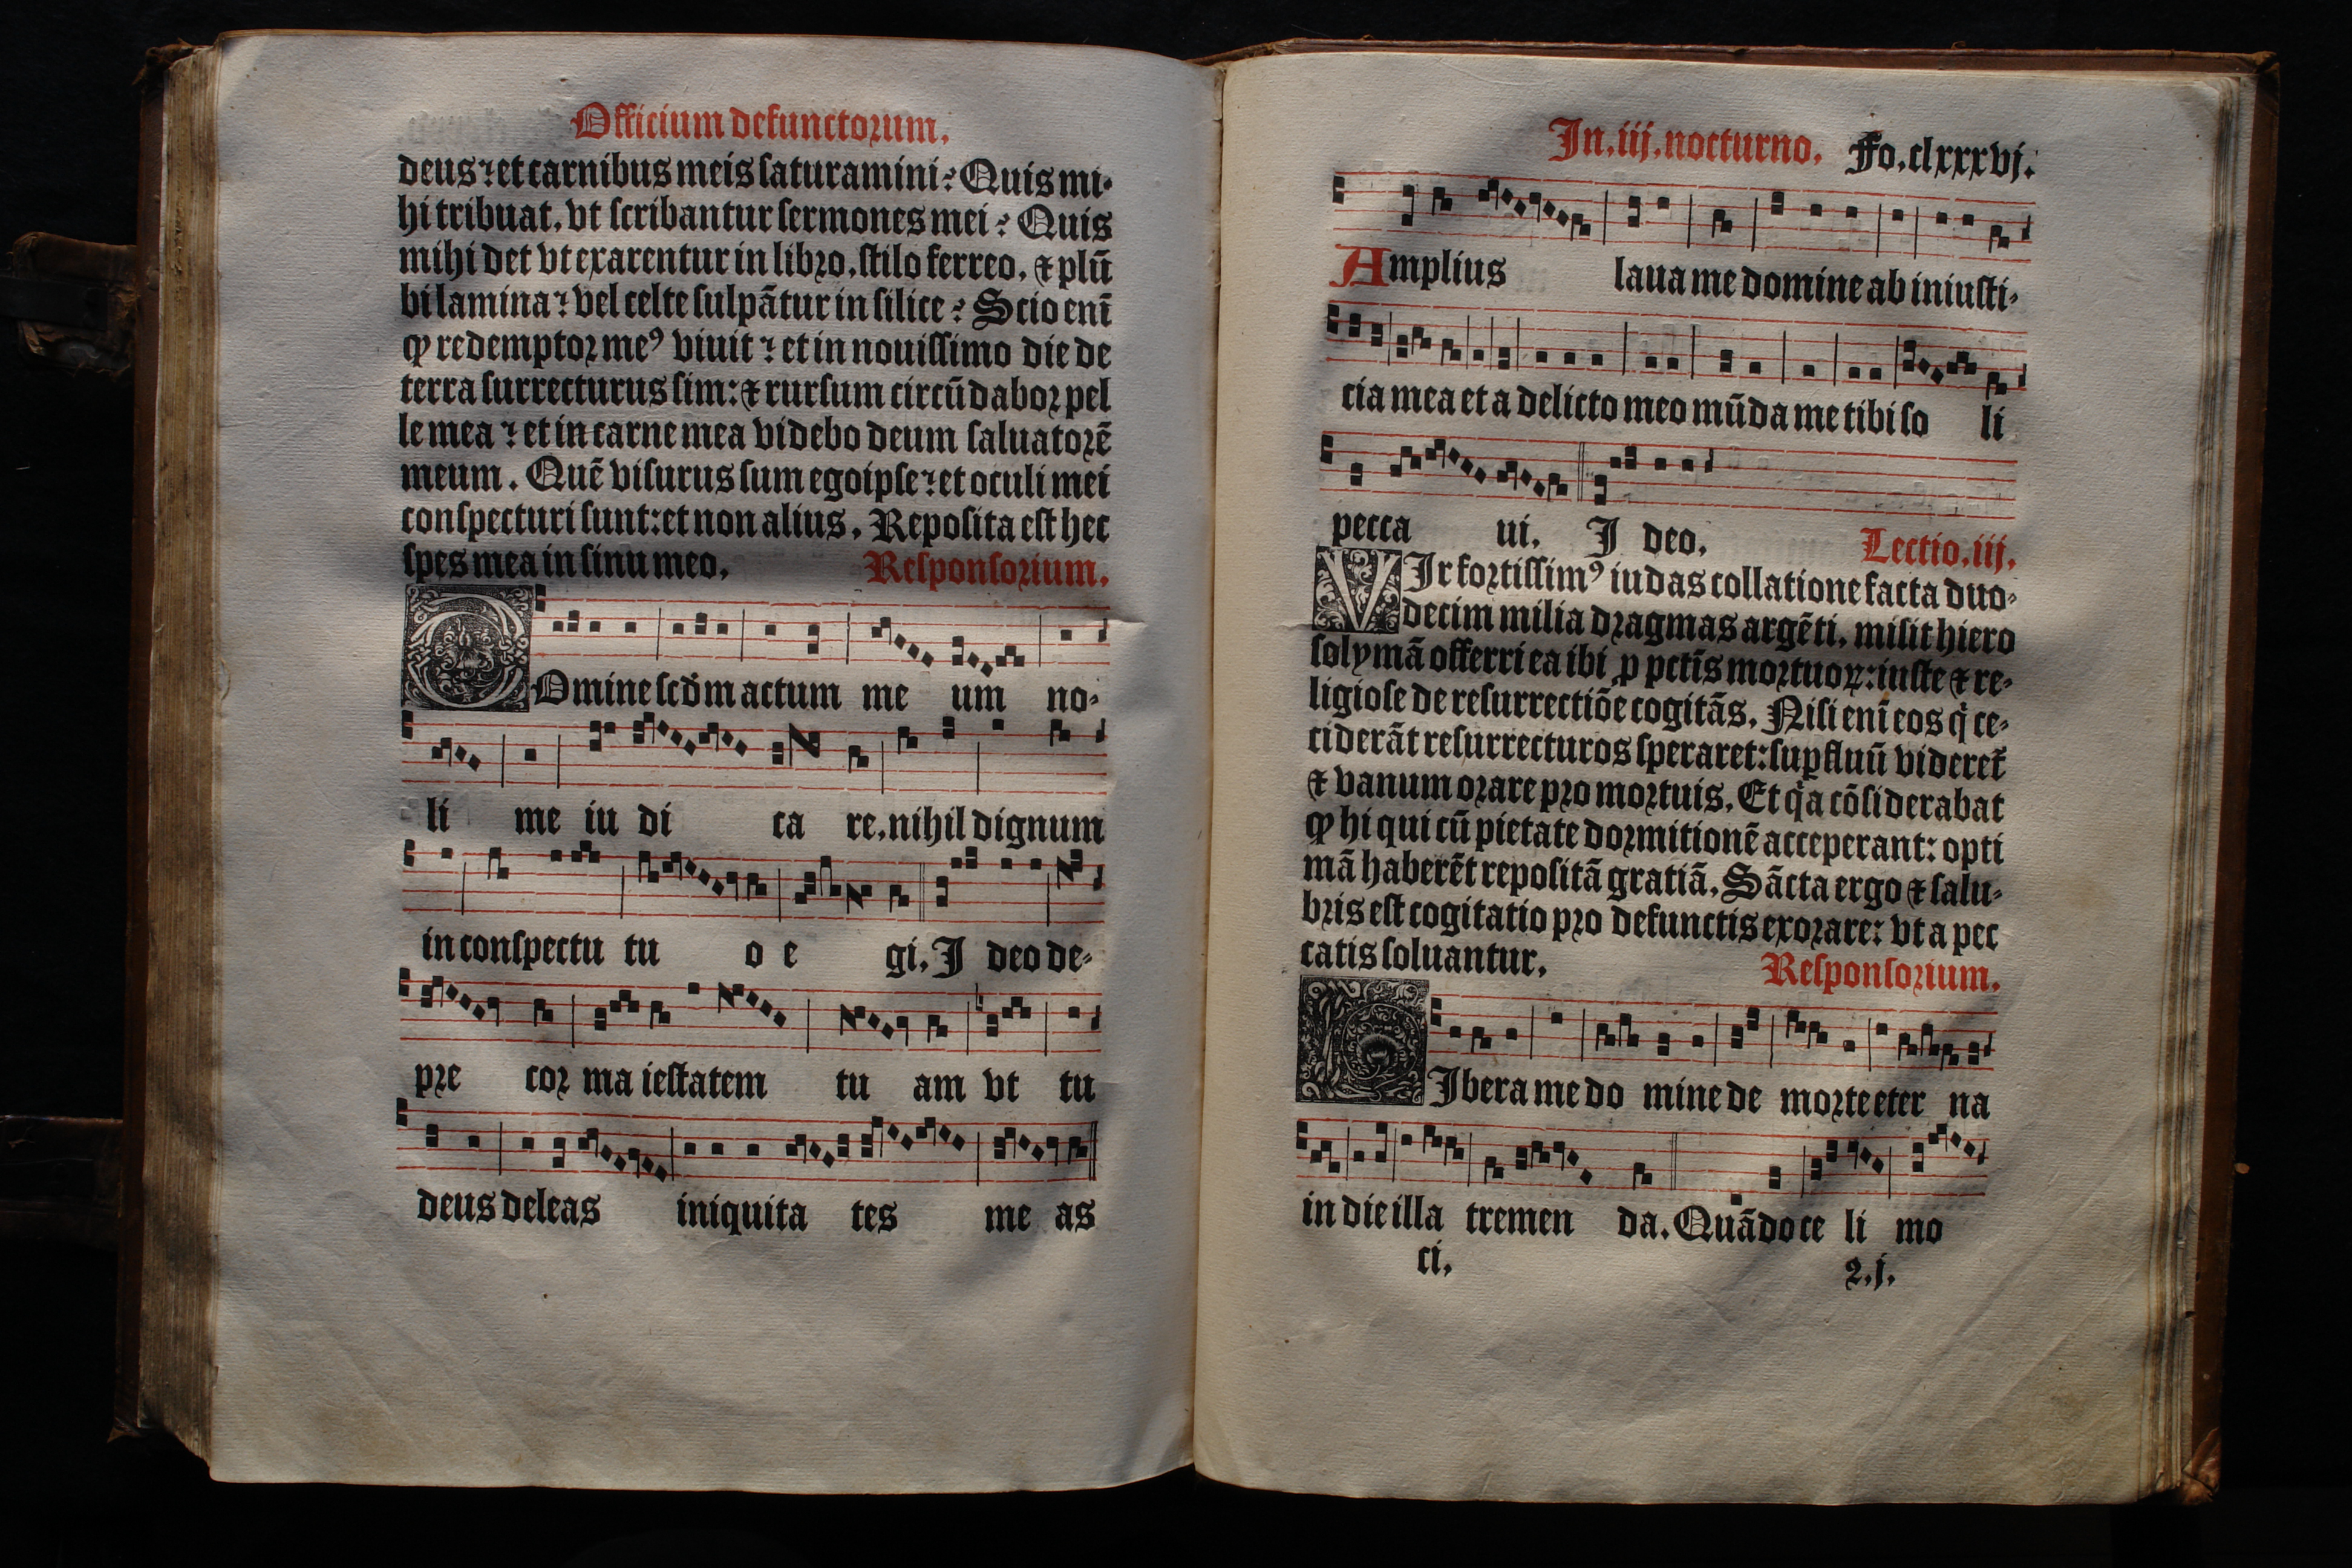 Officium defunctorum.
deus: et carnibus meis saturamini? Quis mi-
hi tribuat, vt scribantur sermones mei? Quis
mihi det vt exarentur in libro, stilo ferreo, ⁊ plū
bi lamina: vel celte sulpātur in silice? Scio enī
ꝙ redemptor meꝰ viuit: et in nouissimo die de
terra surrecturus sim: ⁊ rursum circūdabor pel
le mea: et in carne mea videbo deum saluatorē
meum. Quē visurus sum ego ipse: et oculi mei
conspecturi sunt: et non alius. Reposita est hec
spes mea in sinu meo. Responsorium.
DOmine scd̄m actum me um no-
li me iu di ca re. nihil dignum
in conspectu tu o e gi. I deo de-
pre cor ma iestatem tu am vt tu
deus deleas iniquita tes me as
In .iij. nocturno. Fo. clxxxvj.
Amplius laua me domine ab iniusti-
cia mea et a delicto meo mūda me tibi so li
pecca ui. I deo. Lectio .iij.
VIr fortissimꝰ iudas collatione facta duo-
decim milia dragmas argēti, misit hiero
solymā offerri ea ibi ꝓ pctīs mortuoꝝ: iuste ⁊ re-
ligiose de resurrectiōe cogitās. Nisi enī eos q̇ ce-
ciderāt resurrecturos speraret: suꝑfluū videret̄
⁊ vanum orare pro mortuis. Et qͣa cōsiderabat
ꝙ hi qui cū pietate dormitionē acceperant: opti
mā haberēt repositā gratiā. Sācta ergo ⁊ salu-
bris est cogitatio pro defunctis exorare: vt a pec
catis soluantur. Responsorium.
LIbera me do mine de morte eter na
in die illa tremen da. Quādo ce li mo
ci. 2.j.